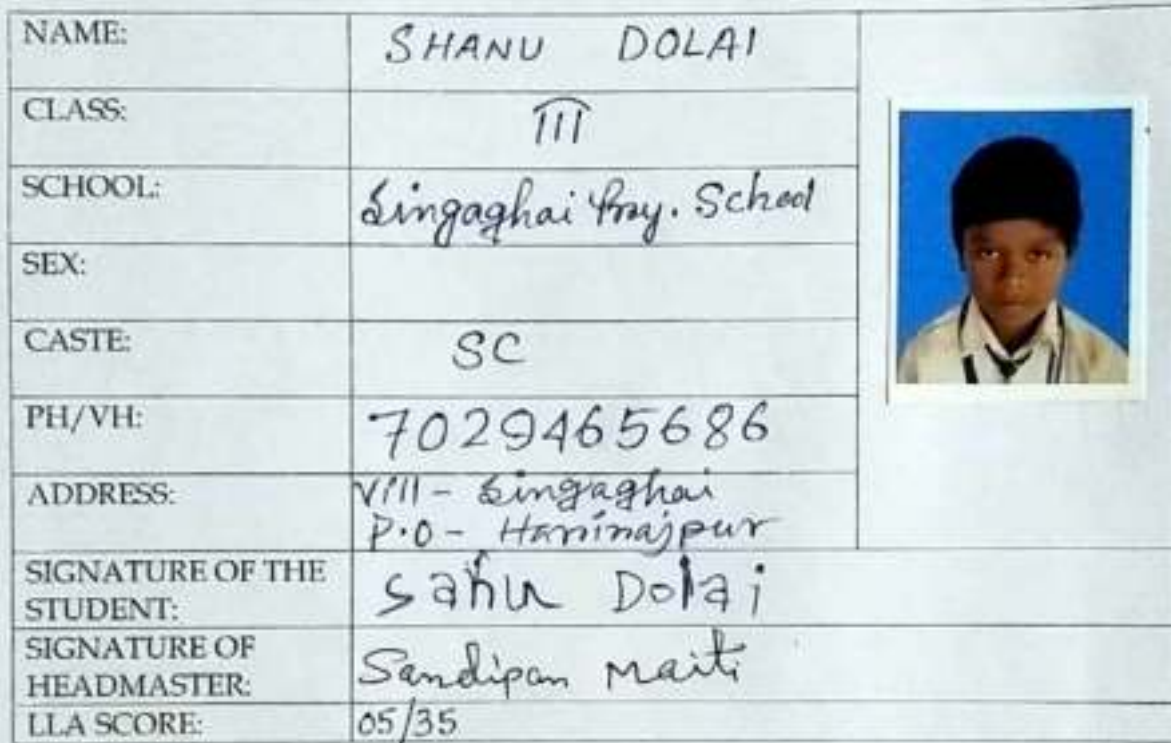 NAME: SHANU DOLAI
CLASS: III
SCHOOL: Singaghai Pry. School
SEX:
CASTE: SC
PH/VH: 7029465686
ADDRESS: Vill - Singaghai
P.O - Harirajpur
SIGNATURE OF THE
STUDENT: Sahu Dolai
SIGNATURE OF
HEADMASTER: Sandipan Maiti
LLA SCORE: 05/35